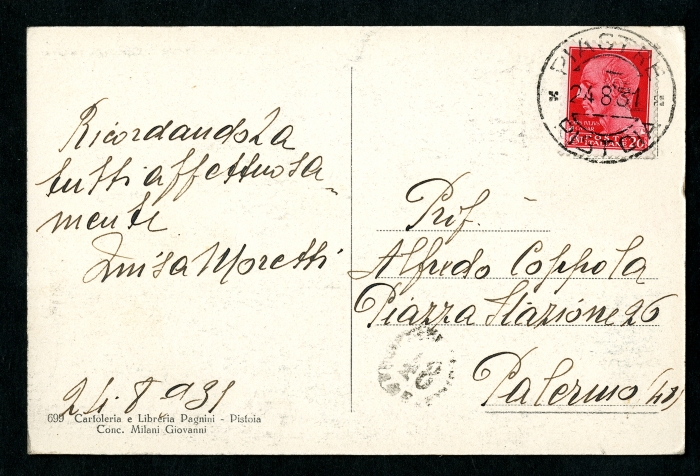 Ricordandola
tutti affettuosa-
mente
Luisa Moretti
24.8.931
699 Cartoleria e Libreria Pagnini - Pistoia
Conc. Milani Giovanni
PIASTRE
24.8.31
PISTOIA
POSTE
ITALIANE 20
Prof.
Alfredo Coppola
Piazza Stazione 26
Palermo